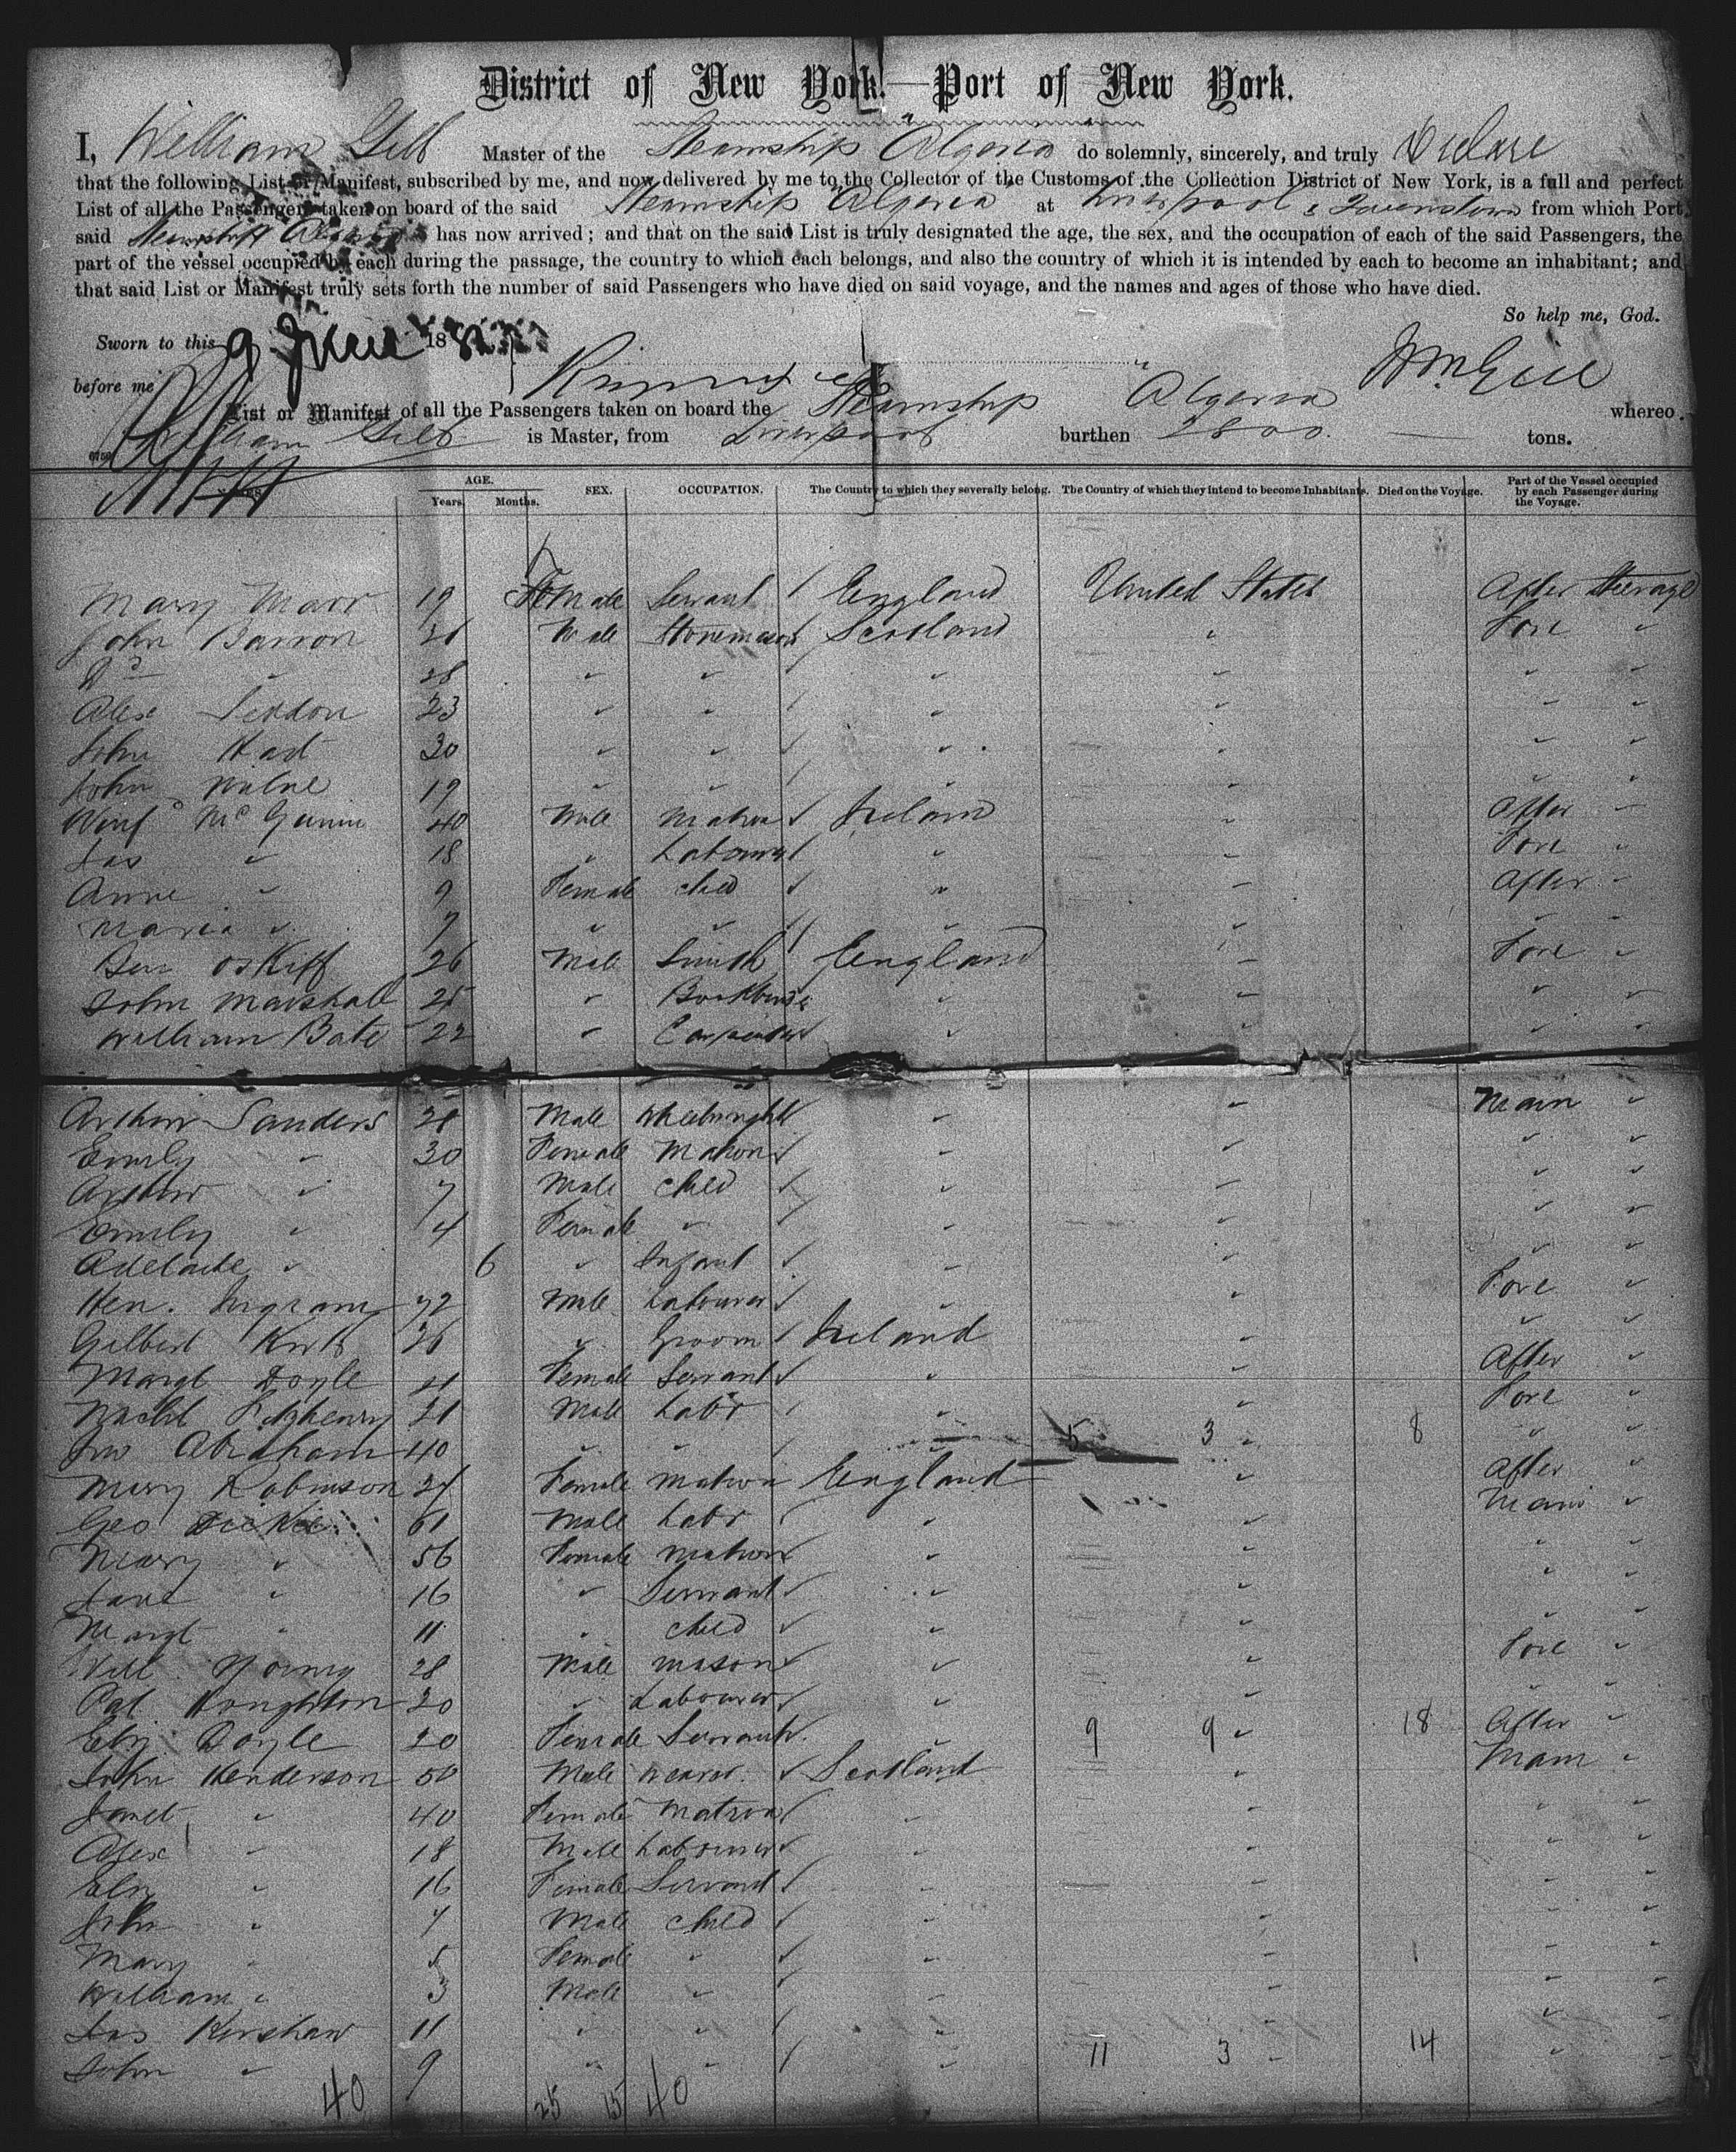 District of New York.—Port of New York.
I, William Gill Master of the Steamship Algeria do solemnly, sincerely, and truly Declare
that the following List or Manifest, subscribed by me, and now delivered by me to the Collector of the Customs of the Collection District of New York, is a full and perfect
List of all the Passengers taken on board of the said Steamship Algeria at Liverpool & Queenstown from which Port
said Steamship Algeria has now arrived; and that on the said List is truly designated the age, the sex, and the occupation of each of the said Passengers, the
part of the vessel occupied by each during the passage, the country to which each belongs, and also the country of which it is intended by each to become an inhabitant; and
that said List or Manifest truly sets forth the number of said Passengers who have died on said voyage, and the names and ages of those who have died.
So help me, God.
Sworn to this 9 June 188
before me Wm Gill
List or Manifest of all the Passengers taken on board the Steamship Algeria whereo
William Gill is Master, from Liverpool burthen 2800 tons.
AGE. SEX. OCCUPATION. The Country to which they severally belong. The Country of which they intend to become Inhabitants. Died on the Voyage. Part of the Vessel occupied by each Passenger during the Voyage.
Years. Months.
Mary Marr 19 Female Servant England United States After Steerage
John Barron Male Stonemason Scotland " Fore "
Do " 28 " " " " " "
Alex Seddon 23 " " " " " "
John Hart 30 " " " " " "
John Milne 19 " " " " " "
McGunn 40 Male Matron Ireland " After "
Jas " 18 " Labourer " " Fore "
Anne " 9 Female child " " After "
Maria " 7 " " " " " "
Ben 26 Male Smith England " Fore "
John Marshall 25 " " " " "
William Bate 22 " Carpenter " " " "
Arthur Sanders Male Wheelwright " " Main "
Emily " 30 Female Matron " " " "
Arthur " 7 Male child " " " "
Emily " 4 Female " " " " "
Adelaide " 6 " Infant " " " "
Hen. Ingram Male Labourer " " Fore "
Gilbert 26 " Groom Ireland " " "
Margt Doyle 21 Female Servant " " After "
Fitzhenry 21 Male Labr " " Fore "
Abraham 40 " " " 5 3 " 8 " "
Mary Robinson Female Matron England " After "
Geo 61 Male Labr " " Main "
Mary " 56 Female Matron " " " "
Jane " 16 " Servant " " " "
Margt " 11 " child " " " "
Will Young 28 Male Mason " " Fore "
Pat Houghton 20 " Labourer " " " "
Eliz Doyle 20 Female Servant " 9 9 " 18 After "
John Henderson 50 Male Weaver Scotland " Main "
Janet " 40 Female Matron " " " "
Alex " 18 Male Labourer " " " "
Eliz " 16 Female Servant " " " "
John " 7 Male child " " " "
Mary " 5 Female " " " " "
William " 3 Male " " " " "
Jas Kershaw 11 " " " " " "
John " 9 " " " 11 3 " 14 " "
40 25 15 40